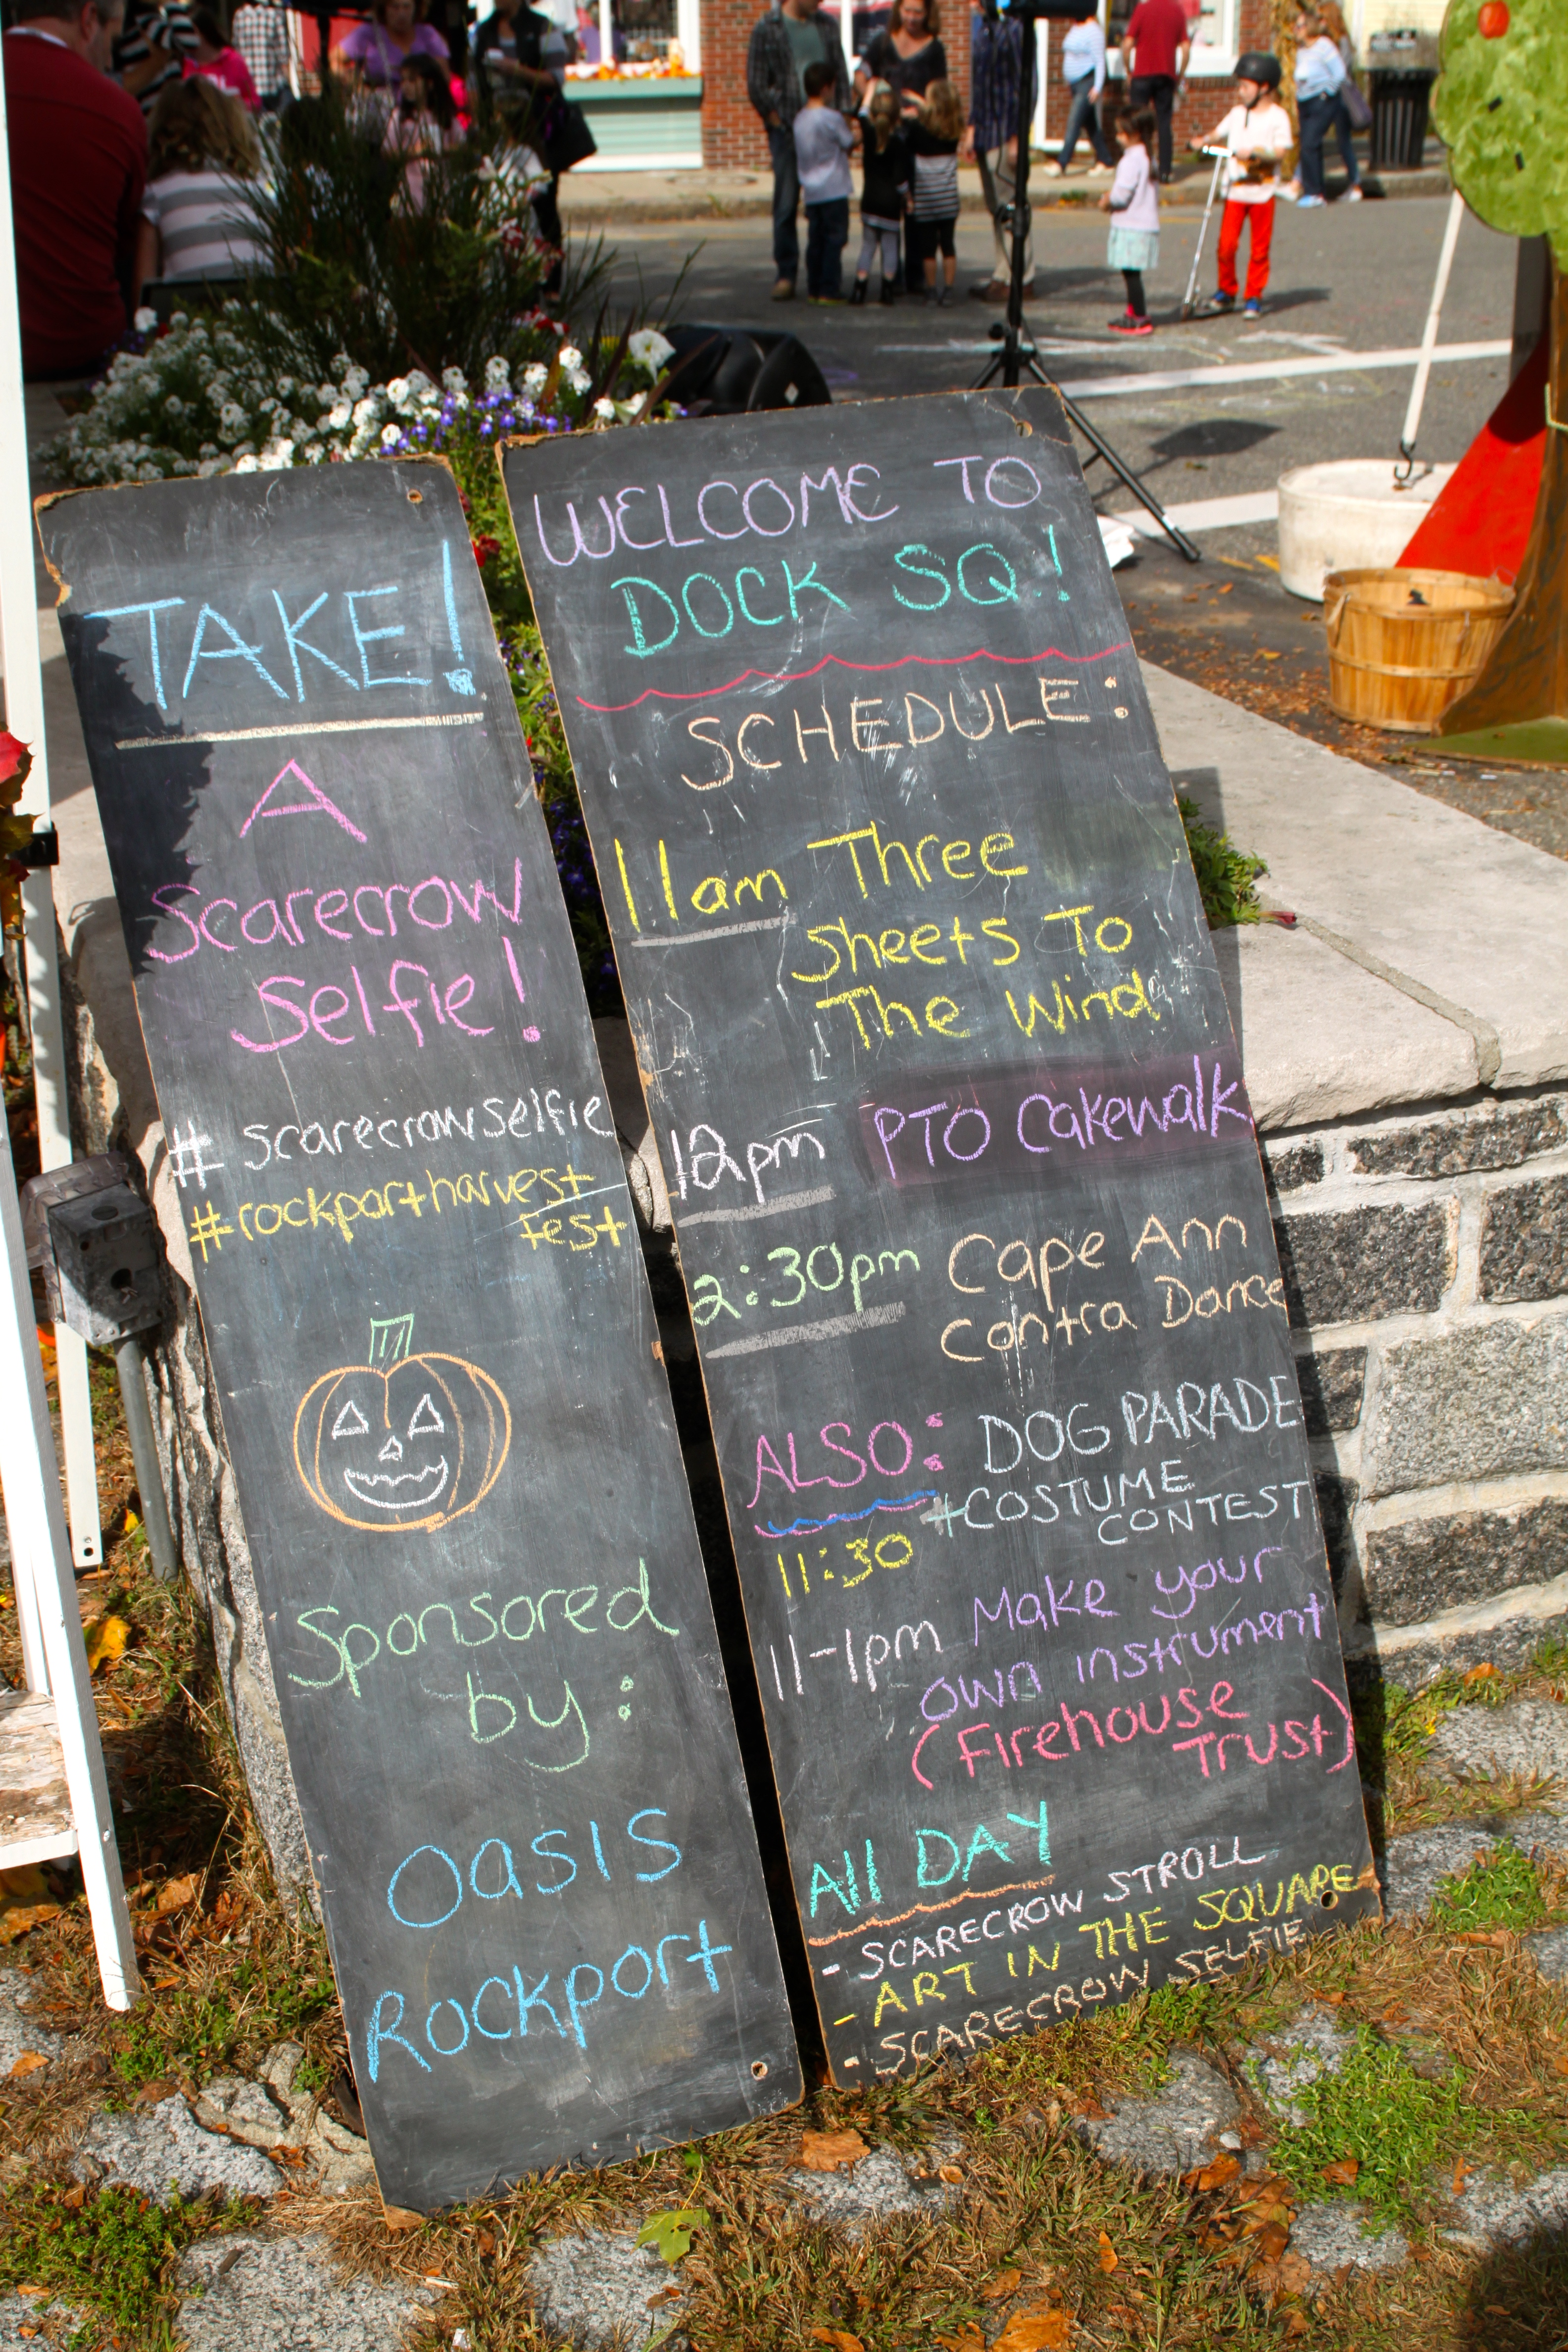 TAKE!
A
Scarecrow
Selfie!
# scarecrowselfie
#rockportharvest
fest
Sponsored
by:
Oasis
Rockport
WELCOME TO
DOCK SQ.!
SCHEDULE:
11am Three
Sheets To
The Wind
12pm PTO Cakewalk
2:30pm Cape Ann
Contra Dance
ALSO: DOG PARADE
+COSTUME
CONTEST
11:30
11-1pm Make your
own instrument
(Firehouse
Trust)
All DAY
- SCARECROW STROLL
- ART IN THE SQUARE
- SCARECROW SELFIE